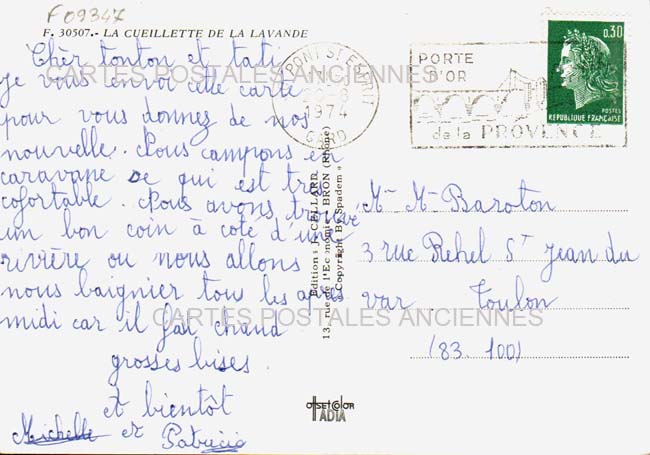 F 09347
F. 30507.- LA CUEILLETTE DE LA LAVANDE
Chèr tonton et tati
je vous renvoi cette carte
pour vous donnez de nos
nouvelle. Nous campons en
caravane ce qui est tres
cofortable. Nous avons trouvé
un bon coin à coté d'une
rivière ou nous allons
nous baignier tou les après
midi car il fait chaud
grosses bises.
et bientôt
Michelle et Patricia
PONT ST ESPRIT
1974
GARD
PORTE
D'OR
de la PROVENCE
0,30
POSTES
REPUBLIQUE FRANÇAISE
Mr Mme Baroton
3 rue Rehel St Jean du
var Toulon
(83.100)
Edition J. CELLARD
13, rue de l'Economie - BRON (Rhône)
Copyright By "Spadem"
offset color
IADIA
CARTES POSTALES ANCIENNES
CARTES POSTALES ANCIENNES